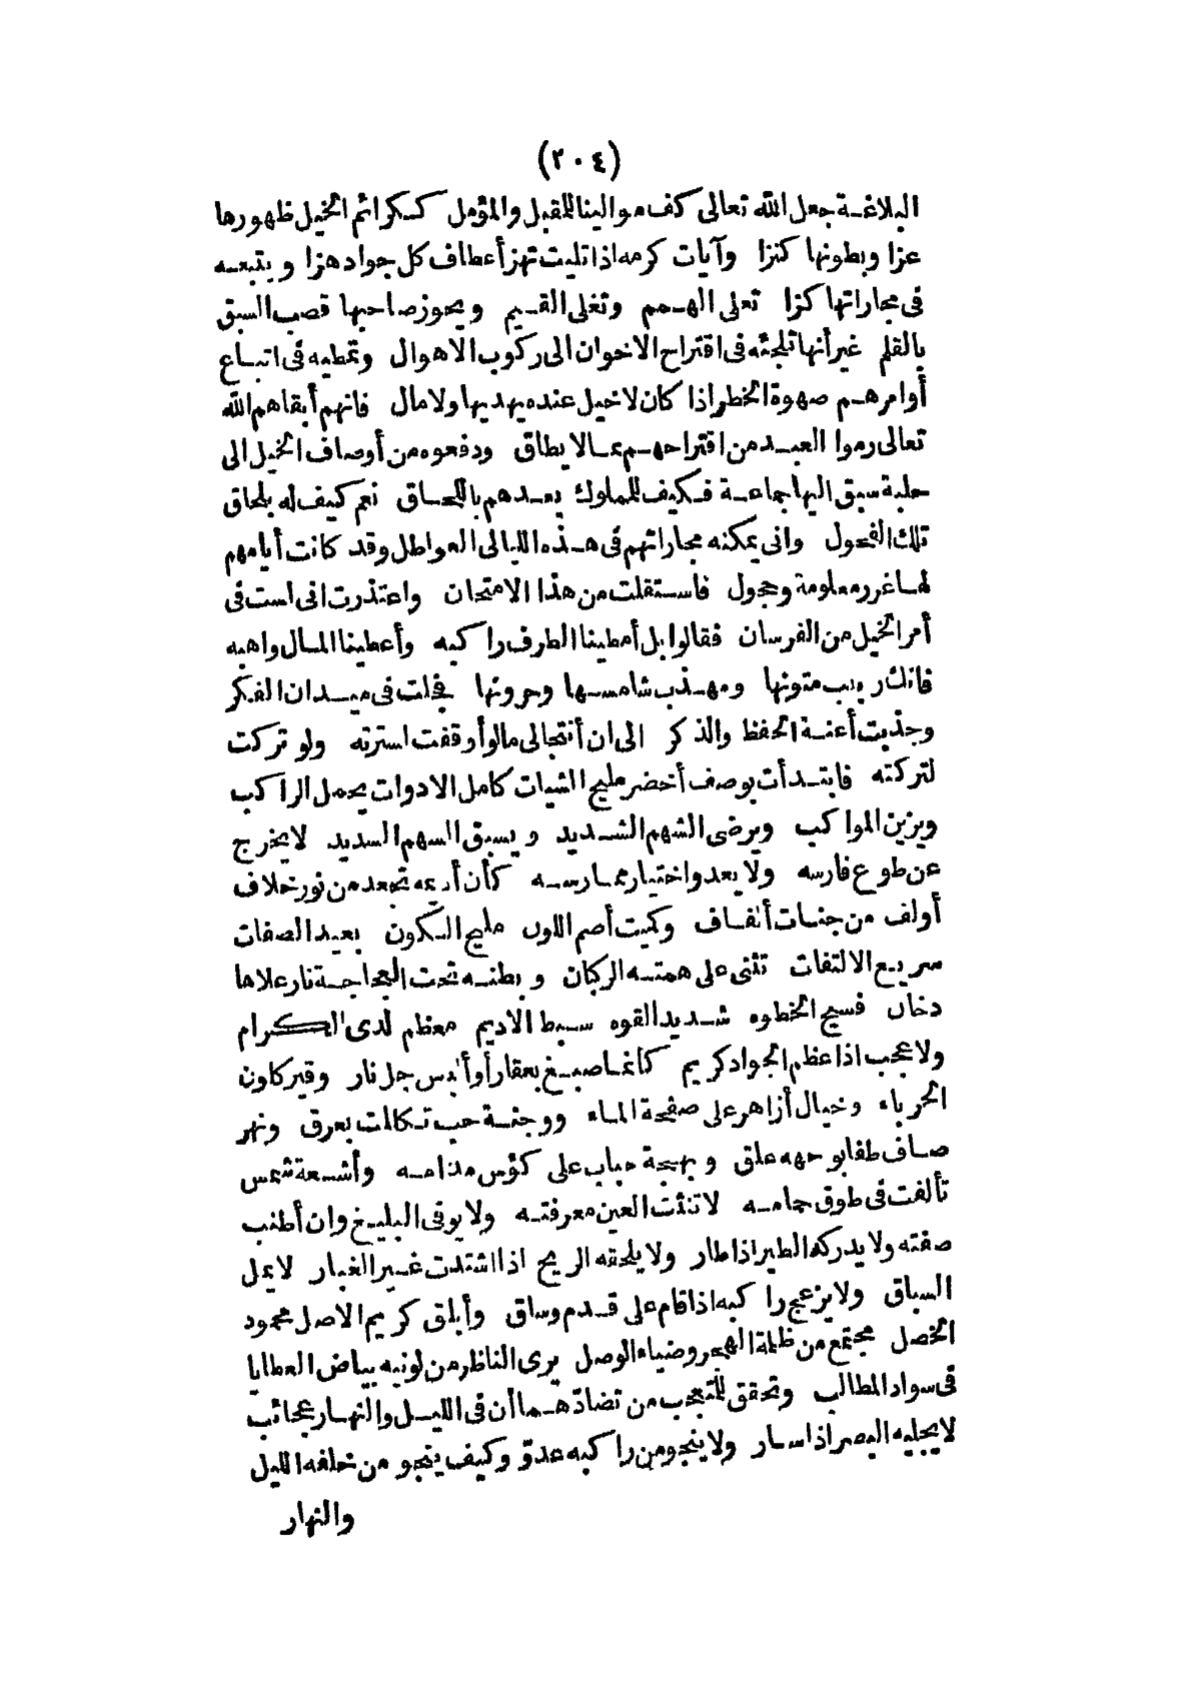 (٢٠٤)
البلاغة جعل الله تعالى كف موالينا للمقبل والمؤمل كسكرائم الخيل ظهورها
عزا وبطونها كنزا وآيات كرمه اذا تليت تهز أعطاف كل جواد هزا ويتبعه
فى مجاراتها كزا تعلى الهمم وتغلى القيم ويحوز صاحبها قصب السبق
بالقلم غير أنها تلجئه فى اقتراح الاخوان الى ركوب الاهوال وتمطيه فى اتباع
أوامرهم صهوة الخطر اذا كان لا خيل عنده يهديها ولا مال فانهم أبقاهم الله
تعالى رموا العبد من اقتراحهم بما لا يطاق ودفعوه من أوصاف الخيل الى
حلبة سبق اليها جماعة فكيف للمملوك بعدهم باللحاق نعم كيف له بلحاق
تلك الفحول وانى يمكنه مجاراتهم فى هذه الليالى العواطل وقد كانت أيامهم
لها غرر معلومة وحجول فاستقلت من هذا الامتحان واعتذرت انى لست فى
أمر الخيل من الفرسان فقالوا بل أمطينا الطرف راكبه وأعطينا المال واهبه
فانك ربيب متونها ومهذب شامسها وحرونها فجلت فى ميدان الفكر
وجذبت أعنة الحفظ والذكر الى ان أنتجالى مالو أوقفت استرته ولو تركت
لتركته فابتدأت بوصف أخضر مليح الشيات كامل الادوات يحمل الراكب
ويزين المواكب ويرضى الشهم الشديد ويسبق السهم السديد لا يخرج
عن طوع فارسه ولا يعدو اختيار ممارسه كأن أديمه تجعد من نور خلاف
أولف من جنات ألفاف وكميت أصم اللون مليح السكون بعيد الصفات
سريع الالتفات تثنى على همته الركبان وبطنه تحت العجاجة نار علاها
دخان فسيح الخطوه شديد القوه سبط الاديم معظم لدى الكرام
ولا عجب اذا عظم الجواد كريم كأنما صبغ بعقار أو ألبس جل نار وقير كاون
الحرباء وخيال أزاهر على صفحة الماء ووجنة حب تكللت بعرق ونهر
صاف طفا بوجهه علق وبهجة حباب على كؤس مدامه وأشعة شمس
تألفت فى طوق حمامه لا تثبت العين معرفته ولا يوفى البليغ وان أطنب
صفته ولا يدركه الطير اذا طار ولا يلحقه الريح اذا اشتدت غير الغبار لا يمل
السباق ولا يزعج راكبه اذا قام على قدم وساق وأبلق كريم الاصل محمود
الخصل مجتمع من ظلمة الهجر وضياء الوصل يرى الناظر من لونيه بياض العطايا
فى سواد المطالب وتحقق للتعجب من تضادهما أن فى الليل والنهار عجائب
لا يجليه البصر اذا سار ولا ينجو من راكبه عدو وكيف ينجو من خلفه الليل
والنهار